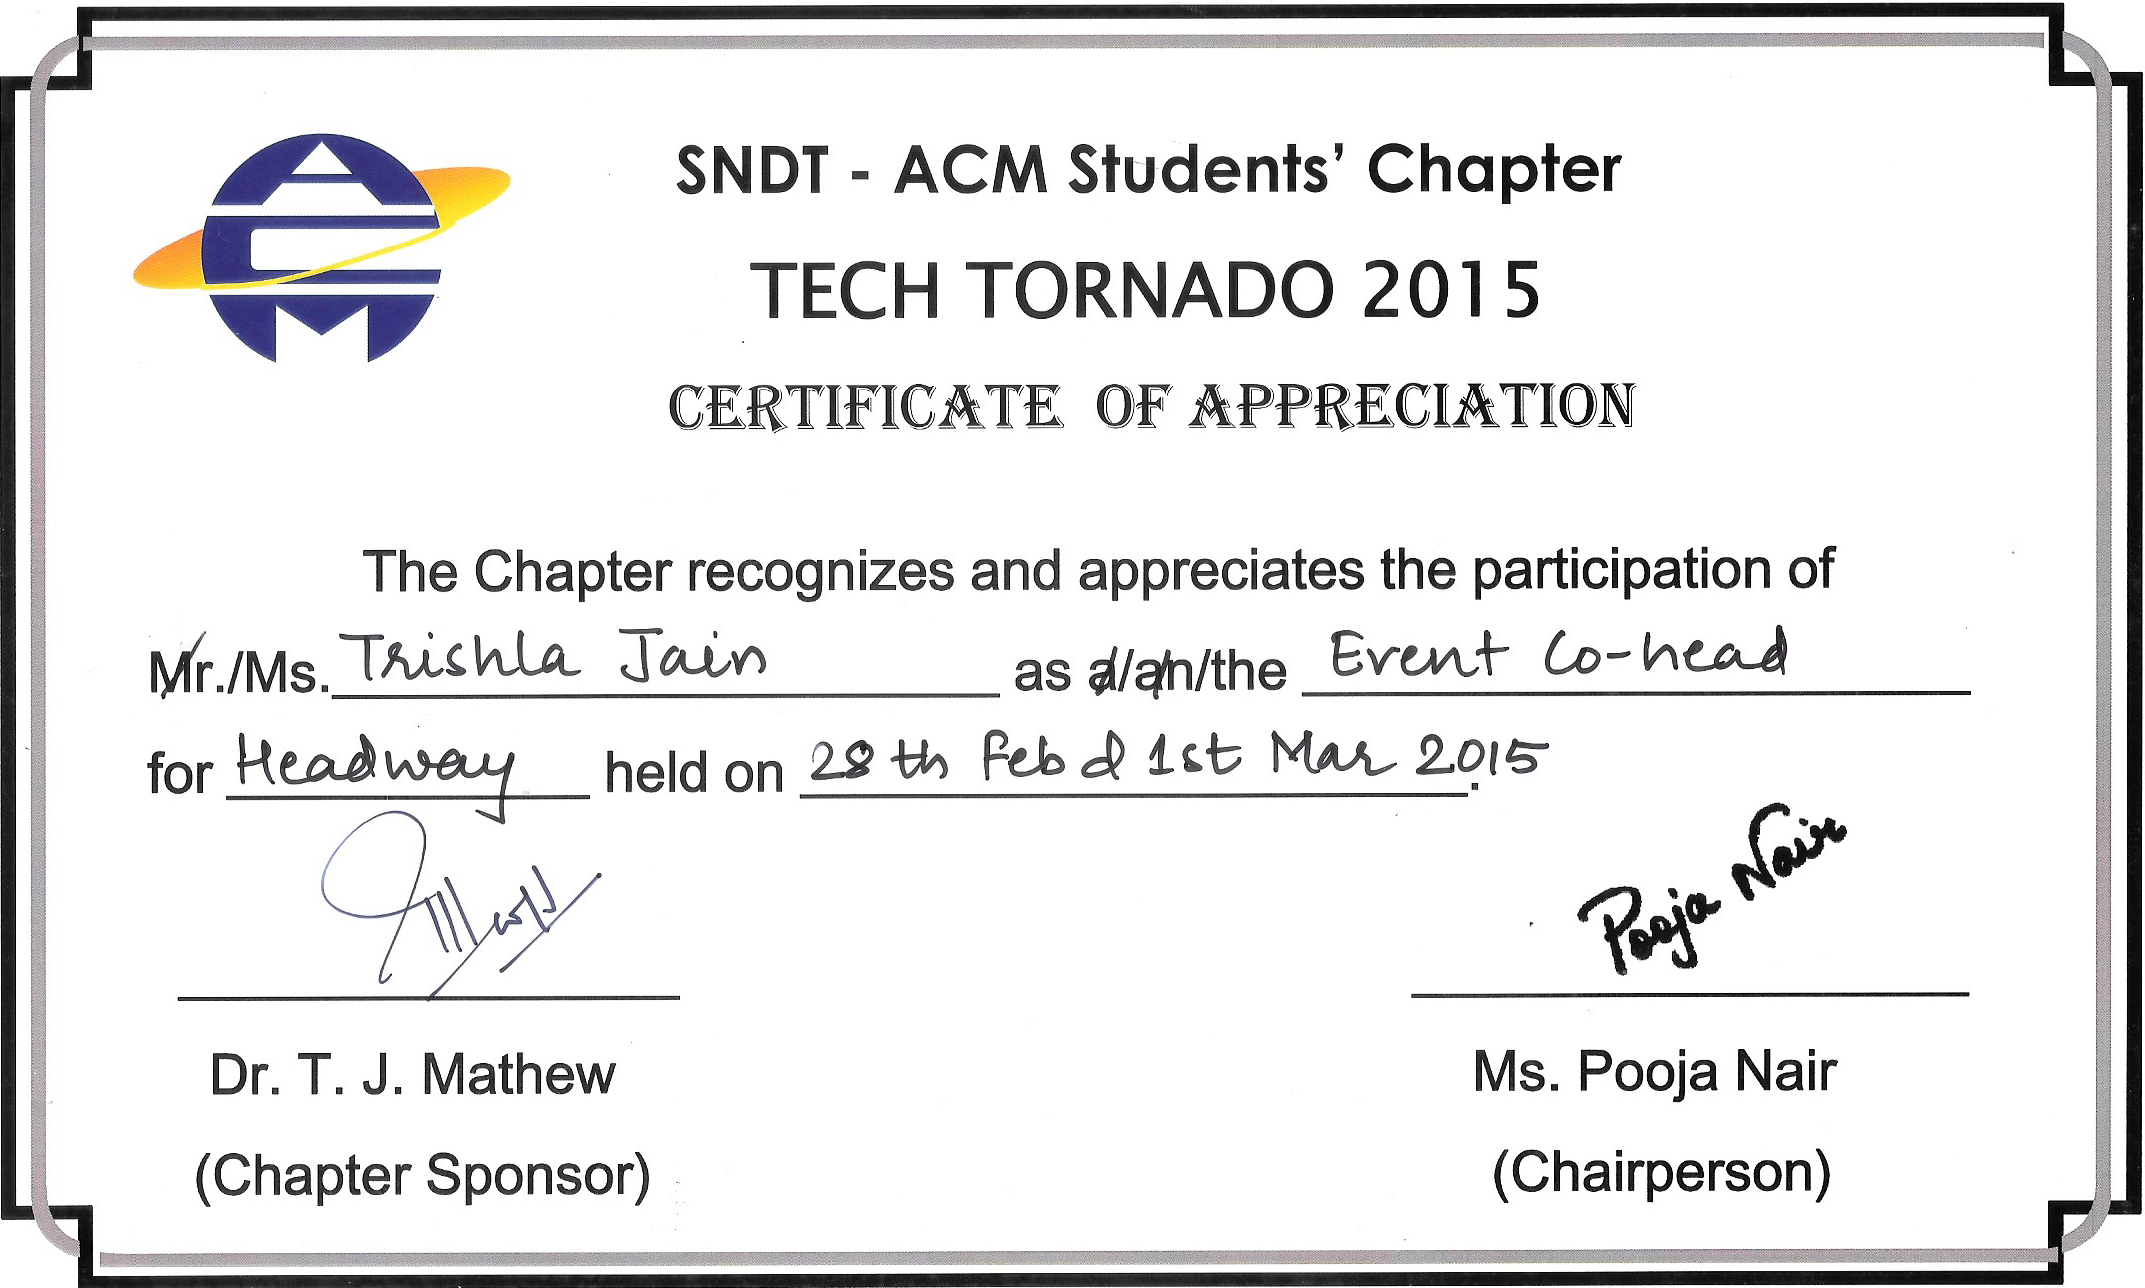 ACM
SNDT - ACM Students' Chapter
TECH TORNADO 2015
CERTIFICATE OF APPRECIATION
The Chapter recognizes and appreciates the participation of
Mr./Ms. Trishla Jain as a/an/the Event Co-head
for Headway held on 28th Feb & 1st Mar 2015.
Pooja Nair
Dr. T. J. Mathew Ms. Pooja Nair
(Chapter Sponsor) (Chairperson)